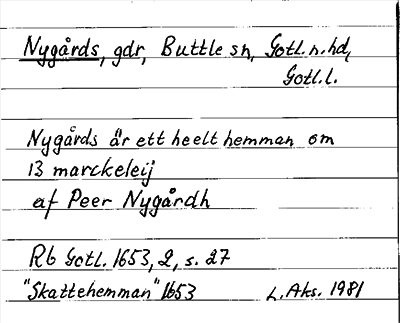 Nygårds, gdr, Buttle sn, Gotl. n. hd,
Gotl. l.
Nygårds är ett heelt hemman om
13 marckeleij
af Peer Nygårdh
Rb Gotl. 1653, 2, s. 27
"Skattehemman" 1653 L. Aks. 1981